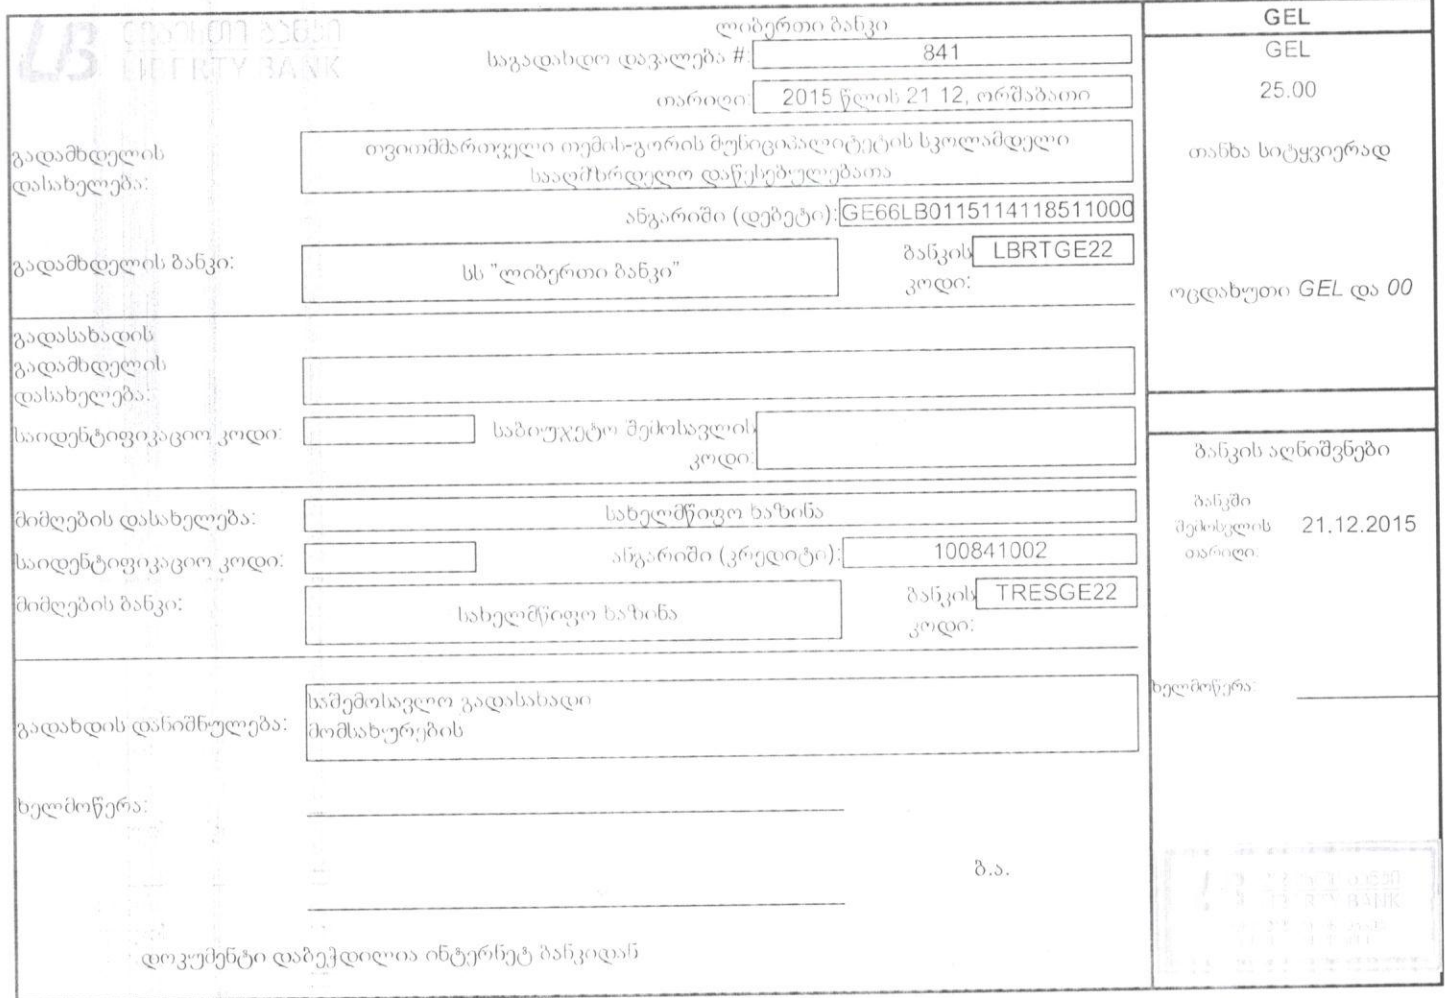 ლიბერთი ბანკი
LIBERTY BANK
ლიბერთი ბანკი
საგადახდო დავალება #: 841
თარიღი: 2015 წლის 21 12, ორშაბათი
გადამხდელის დასახელება:
თვითმმართველი თემის-გორის მუნიციპალიტეტის სკოლამდელი
სააღმზრდელო დაწესებულებათა
ანგარიში (დებეტი): GE66LB0115114118511000
გადამხდელის ბანკი: სს "ლიბერთი ბანკი" ბანკის კოდი: LBRTGE22
გადასახადის
გადამხდელის
დასახელება:
საიდენტიფიკაციო კოდი: საბიუჯეტო შემოსავლის
კოდი:
მიმღების დასახელება: სახელმწიფო ხაზინა
საიდენტიფიკაციო კოდი: ანგარიში (კრედიტი): 100841002
მიმღების ბანკი: სახელმწიფო ხაზინა ბანკის კოდი: TRESGE22
გადახდის დანიშნულება: საშემოსავლო გადასახადი
მომსახურების
ხელმოწერა:
ბ.ა.
დოკუმენტი დაბეჭდილია ინტერნეტ ბანკიდან
GEL
GEL
25.00
თანხა სიტყვიერად
ოცდახუთი GEL და 00
ბანკის აღნიშვნები
ბანკში
შემოსვლის 21.12.2015
თარიღი:
ხელმოწერა:
BANK